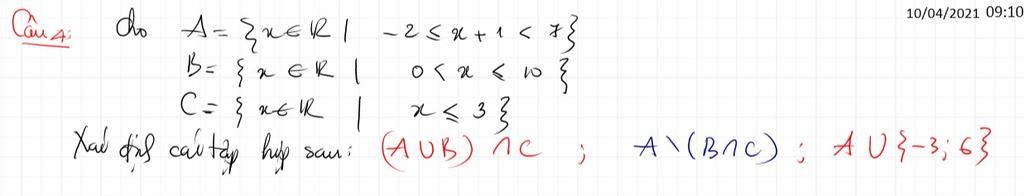 10/04/2021 09:10
Câu 4: cho A = {x ∈ ℝ | -2 ≤ x + 1 < 7}
B = {x ∈ ℝ | 0 < x ≤ 10}
C = {x ∈ ℝ | x ≤ 3}
Xác định các tập hợp sau: (A ∪ B) ∩ C ; A \ (B ∩ C) ; A ∪ {-3; 6}